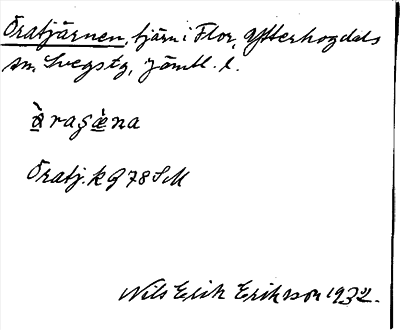 Öratjärnen, tjärn i Flor, Ytterhogdals
sn, Svegs tg, Jämtl. l.
Öratj. k 978 SM
Nils Erik Erikson 1932.